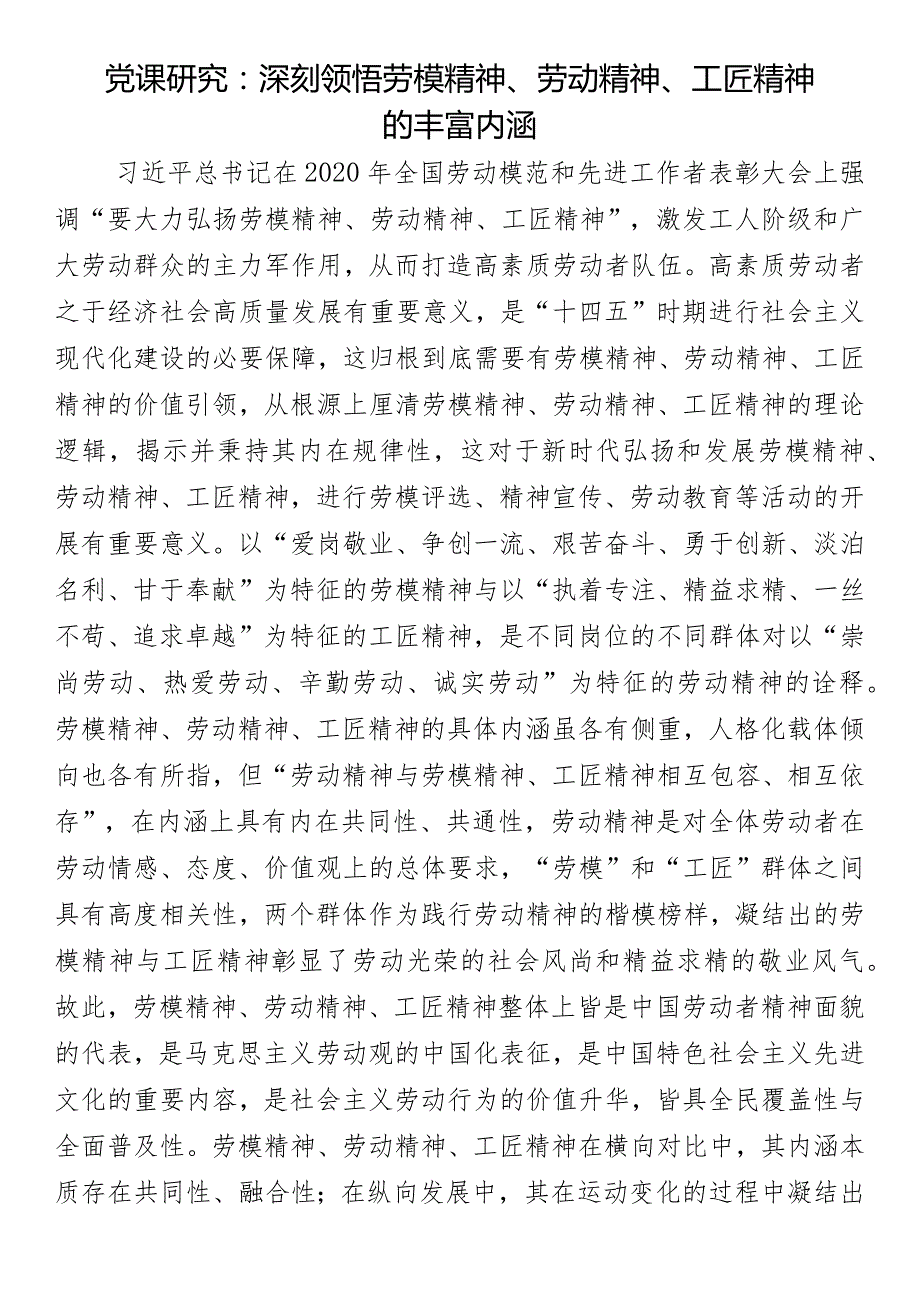 党课研究：深刻领悟劳模精神、劳动精神、工匠精神
的丰富内涵
习近平总书记在2020年全国劳动模范和先进工作者表彰大会上强
调“要大力弘扬劳模精神、劳动精神、工匠精神”，激发工人阶级和广
大劳动群众的主力军作用，从而打造高素质劳动者队伍。高素质劳动者
之于经济社会高质量发展有重要意义，是“十四五”时期进行社会主义
现代化建设的必要保障，这归根到底需要有劳模精神、劳动精神、工匠
精神的价值引领，从根源上厘清劳模精神、劳动精神、工匠精神的理论
逻辑，揭示并秉持其内在规律性，这对于新时代弘扬和发展劳模精神、
劳动精神、工匠精神，进行劳模评选、精神宣传、劳动教育等活动的开
展有重要意义。以“爱岗敬业、争创一流、艰苦奋斗、勇于创新、淡泊
名利、甘于奉献”为特征的劳模精神与以“执着专注、精益求精、一丝
不苟、追求卓越”为特征的工匠精神，是不同岗位的不同群体对以“崇
尚劳动、热爱劳动、辛勤劳动、诚实劳动”为特征的劳动精神的诠释。
劳模精神、劳动精神、工匠精神的具体内涵虽各有侧重，人格化载体倾
向也各有所指，但“劳动精神与劳模精神、工匠精神相互包容、相互依
存”，在内涵上具有内在共同性、共通性，劳动精神是对全体劳动者在
劳动情感、态度、价值观上的总体要求，“劳模”和“工匠”群体之间
具有高度相关性，两个群体作为践行劳动精神的楷模榜样，凝结出的劳
模精神与工匠精神彰显了劳动光荣的社会风尚和精益求精的敬业风气。
故此，劳模精神、劳动精神、工匠精神整体上皆是中国劳动者精神面貌
的代表，是马克思主义劳动观的中国化表征，是中国特色社会主义先进
文化的重要内容，是社会主义劳动行为的价值升华，皆具全民覆盖性与
全面普及性。劳模精神、劳动精神、工匠精神在横向对比中，其内涵本
质存在共同性、融合性；在纵向发展中，其在运动变化的过程中凝结出